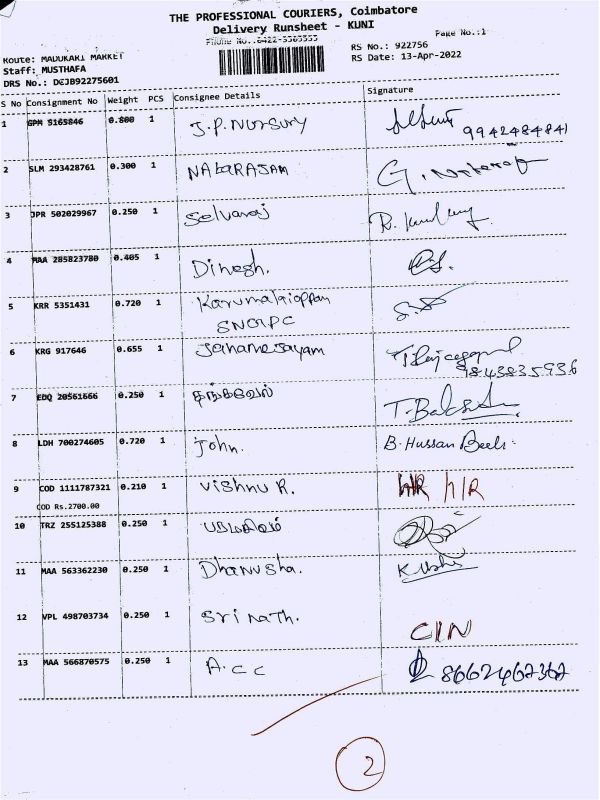 THE PROFESSIONAL COURIERS, Coimbatore
Delivery Runsheet - KUNI
Page No.:1
Route: MADUKARI MARKET
RS No.: 922756
Staff: MUSTHAFA
RS Date: 13-Apr-2022
DRS No.: DCJB92275601
S No Consignment No Weight PCS Consignee Details Signature
1 GPM 5165846 0.800 1 J.P. Nursury
9942484841
2 SLM 293428761 0.300 1 NATARAJAN G.
3 JPR 502029967 0.250 1 Selvaraj R.
4 MAA 285823780 0.405 1 Dinesh.
5 KRR 5351431 0.720 1 Karumalaioppan
SNGIPC
6 KRG 917646 0.655 1 T Rajagopal
9843835936
7 EDQ 20561666 0.250 1 தங்கவேல் T.
8 LDH 700274605 0.720 1 John. B. Hussan Beeli.
9 COD 1111787321 0.210 1 Vishnu R. H/R H/R
COD Rs.2700.00
10 TRZ 255125388 0.250 1
11 MAA 563362230 0.250 1 Dhanusha. K. Usha
12 VPL 498703734 0.250 1 Srinath.
C/N
13 MAA 566870575 0.250 1 A.CC 8662462362
2